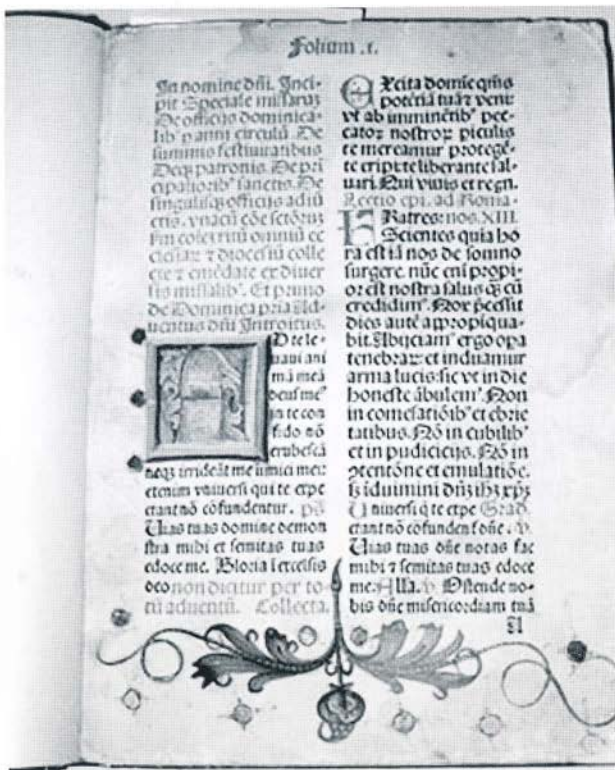 Folium .i.
In nomine dñi. Inci-
pit Speciale missaruꝫ
De officiis dominica-
lib⁹ ꝑ anni circulū. De
summis festivitatibus
Deqꝫ patronis. De pri
cipaliorib⁹ sanctis. De
singulisqꝫ officijs adiū
ctis. vnacū cōe sctōruꝫ
ritū omniū ec
clesiaꝝ ⁊ diocesiū colle
cte ⁊ emēdate ex diuer
sis missalib⁹. Et primo
de Dominica pria Ad
uentus dñi Introitus.
D te le-
uaui ani
mā meā
deus me⁹
in te con
fido nō
erubescā
neqꝫ irrideāt me inimici mei:
etenim vniuersi qui te expe
ctant nō cōfundentur. ps
Uias tuas domine demon
stra mihi et semitas tuas
edoce me. Gloria ī excelsis
deo non dicitur per to
tū aduentū. Collecta.
EXcita domīe q̄m̄s
potētiā tuā ⁊ veni:
vt ab imminētib⁹ pec-
catoꝝ nostroꝝ piculis
te mereamur protegē-
te eripi: te liberante sal-
uari. Qui viuis et regn.
Lectio epl. ad Roma.
FRatres: nos. XIII.
Scientes quia ho
ra est iā nos de somno
surgere. nūc eni propi-
or est nostra salus qꝫ cū
credidim⁹. Nox p̄cessit
dies autē appropīqua-
bit. Abijciam⁹ ergo opa
tenebraꝝ: et induamur
arma lucis: sic vt in die
honeste ābulem⁹. Non
in comesatiōib⁹ et ebrie
tatibus. Nō in cubilib⁹
et in pudicicijs. Nō in
ꝯtentōne et emulatiōe.
sꝫ īduimini dn̄ꝫ ihꝫ xp̄ꝫ
Uniuersi q̄ te expe Grad.
ctant nō cofundenť dn̄e. v.
Uias tuas dn̄e notas fac
mihi ⁊ semitas tuas edoce
me. Alla. v. Ostende no-
bis dn̄e misericordiam tuā
A